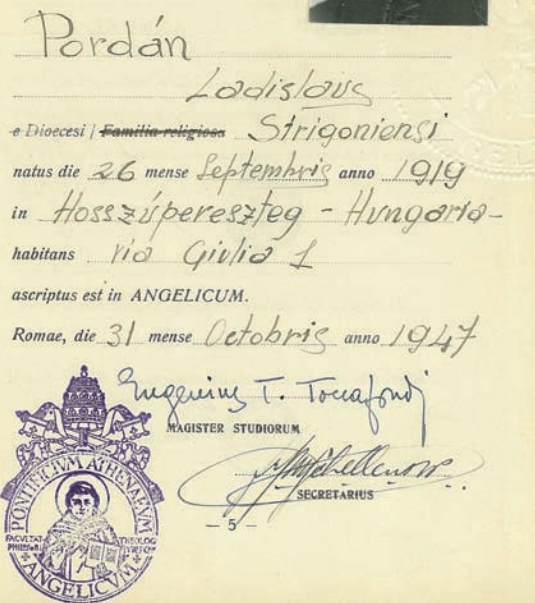 Pordán
Ladislaus
e Dioecesi / Familia religiosa Strigoniensi
natus die 26 mense Septembris anno 1919
in Hosszúpereszteg - Hungaria -
habitans via Giulia 1
ascriptus est in ANGELICUM.
Romae, die 31 mense Octobris anno 1947
Eugenius T. Toccafondi
MAGISTER STUDIORUM
SECRETARIUS
— 5 —
PONTIFICIVM ATHENAEVM
ANGELICVM